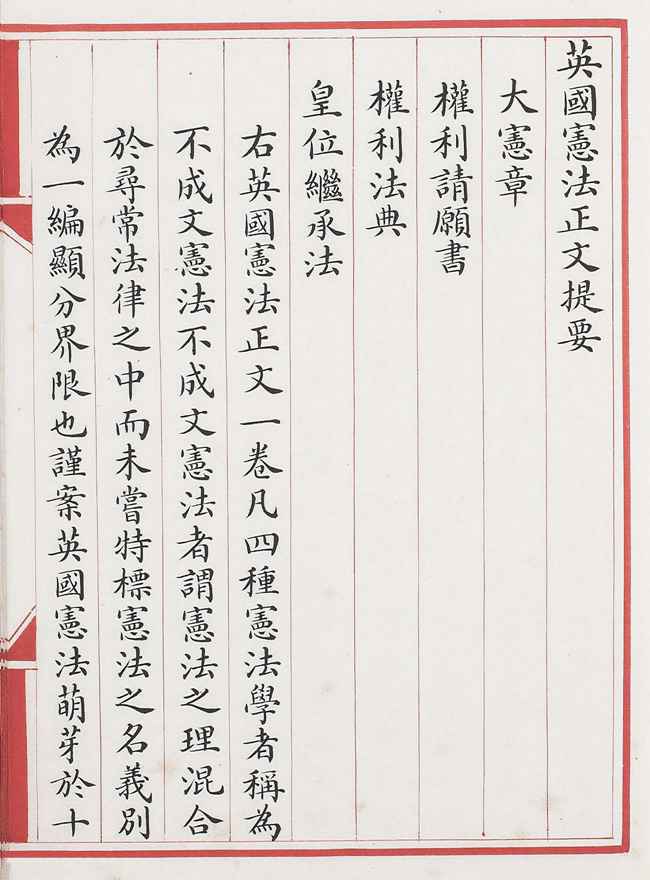 英國憲法正文提要
大憲章
權利請願書
權利法典
皇位繼承法
右英國憲法正文一卷凡四種憲法學者稱為
不成文憲法不成文憲法者謂憲法之理混合
於尋常法律之中而未嘗特標憲法之名義別
為一編顯分界限也謹案英國憲法萌芽於十